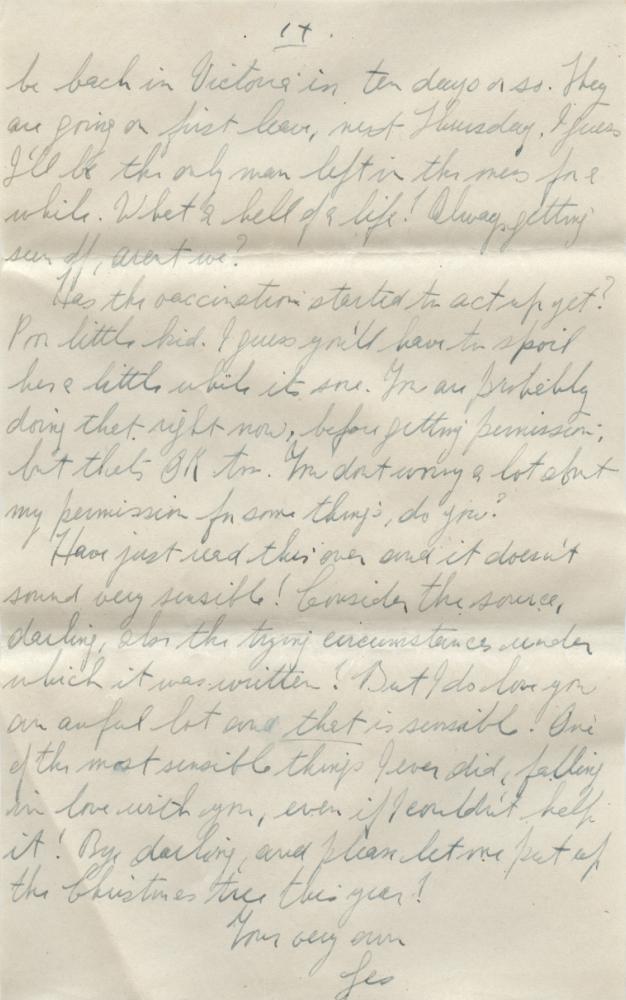 be back in Victoria in ten days or so. They
are going on first leave, next Thursday. I guess
I'll be the only man left in the mess for a
while. What a hell of a life! Always getting
seen off, arent we?
Has the vaccination started to act up yet?
Poor little kid. I guess you'll have to spoil
her a little while its sore. You are probably
doing that right now, before getting permission,
but thats OK too. You dont worry a lot about
my permission for some things, do you?
Have just read this over and it doesn't
sound very sensible! Consider the source,
darling, also the trying circumstances under
which it was written! But I do love you
an awful lot and that is sensible! One
of the most sensible things I ever did, falling
in love with you, even if I couldn't help
it! Bye darling, and please let me put up
the Christmas tree this year!
Your very own
Les